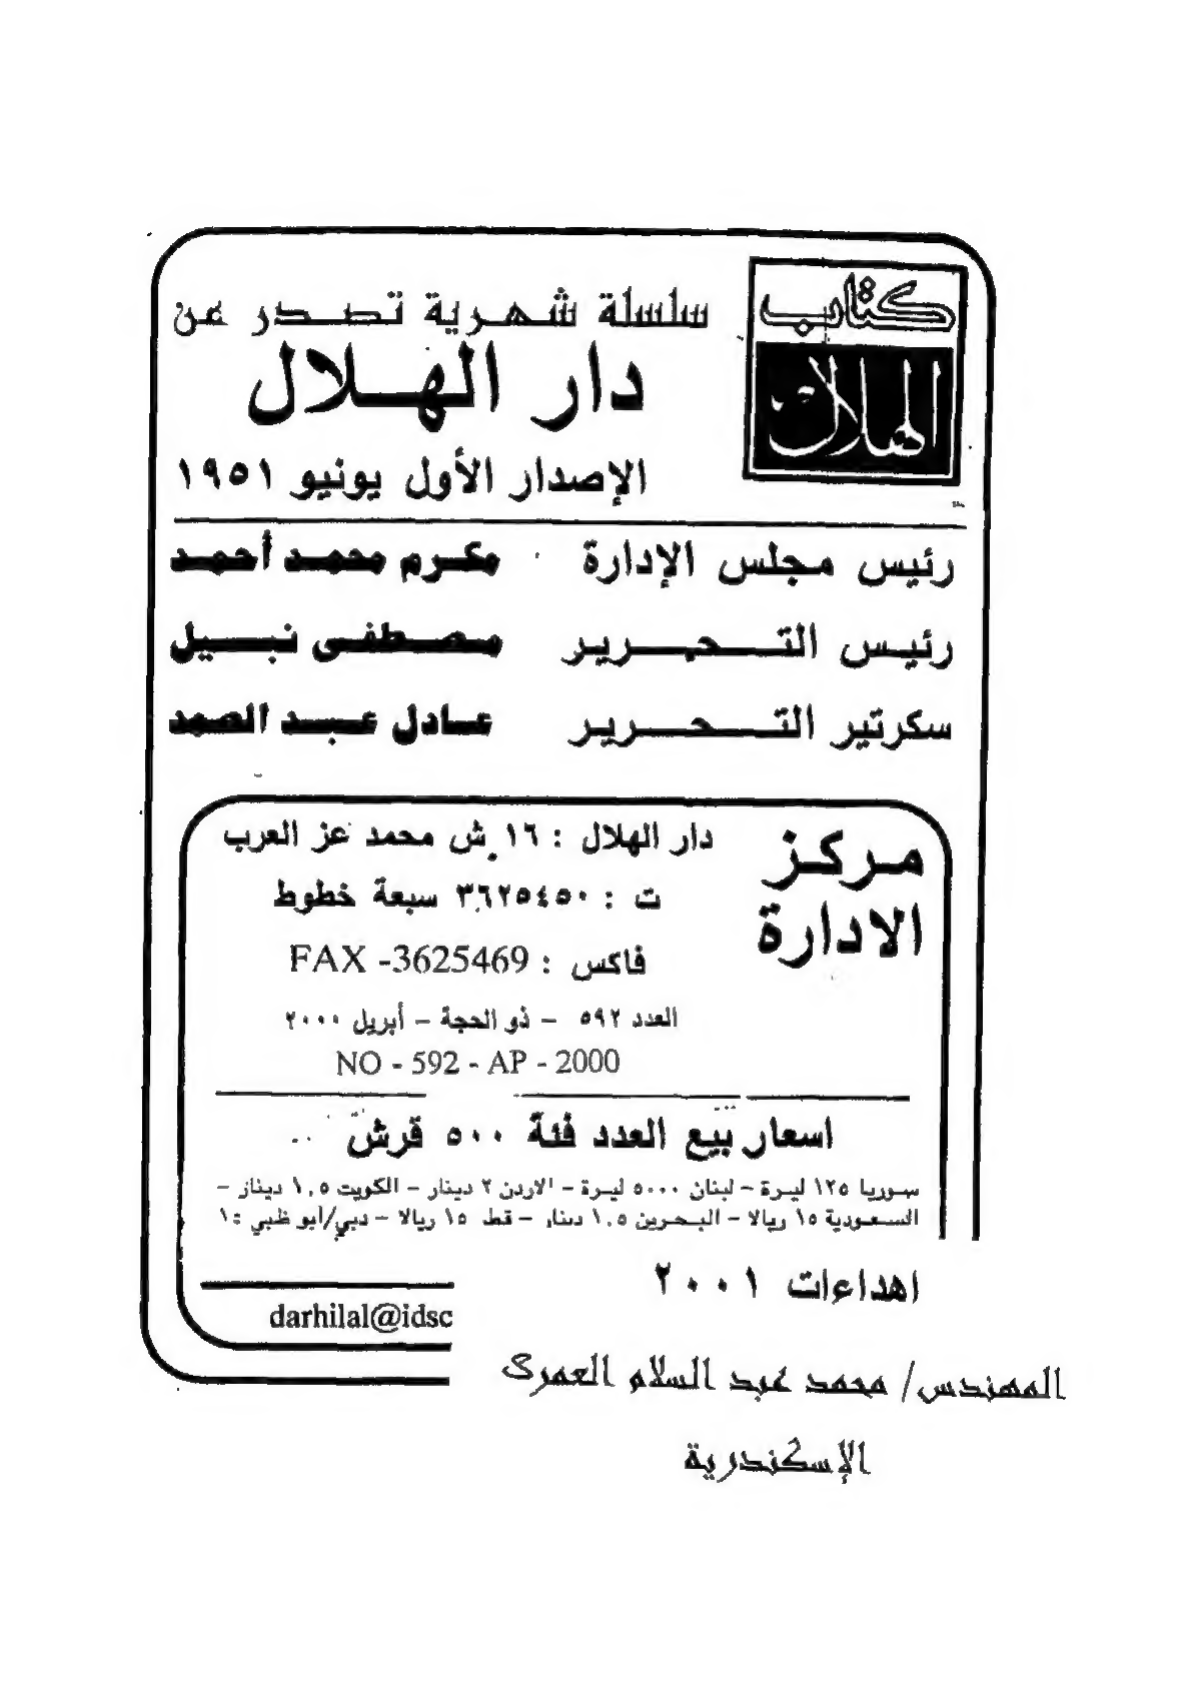 كتاب
الهلال
سلسلة شهرية تصدر عن
دار الهلال
الإصدار الأول يونيو ١٩٥١
رئيس مجلس الإدارة مكرم محمد أحمد
رئيس التحرير مصطفى نبيل
سكرتير التحرير عادل عبد الصمد
مركز
الادارة
دار الهلال : ١٦ ش محمد عز العرب
ت : ٣٦٢٥٤٥٠ سبعة خطوط
فاكس : FAX -3625469
العدد ٥٩٢ - ذو الحجة - أبريل ٢٠٠٠
NO - 592 - AP - 2000
اسعار بيع العدد فئة ٥٠٠ قرش
سوريا ١٢٥ ليرة - لبنان ٥٠٠٠ ليرة - الاردن ٢ دينار - الكويت ١,٥ دينار -
السعودية ١٥ ريالا - البحرين ١,٥ دينار - قطر ١٥ ريالا - دبي/أبو ظبي ١
darhilal@idsc
اهداءات ٢٠٠١
المهندس/ محمد عبد السلام العمرى
الإسكندرية